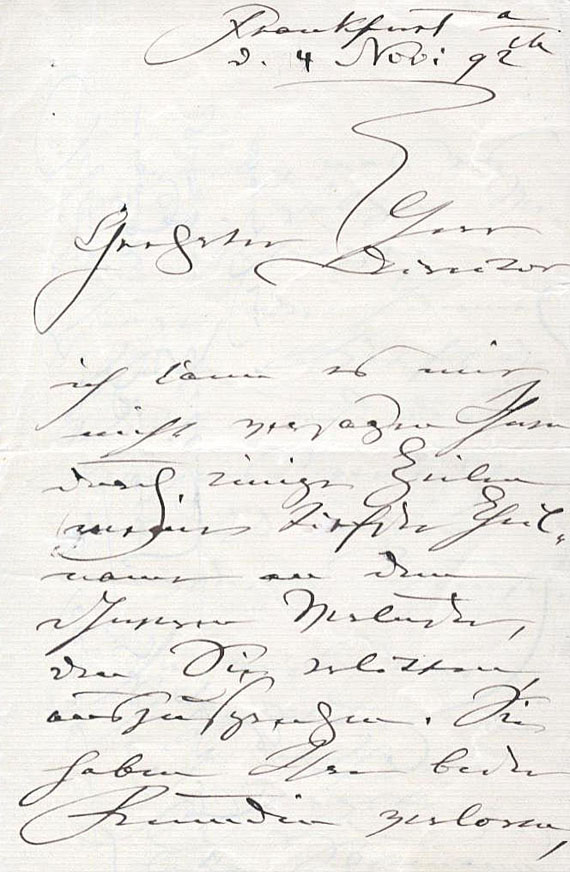 Frankfurt a/M
d. 4 Nov: 92
Geehrter Herr
Director
ich kann es mir
nicht versagen Ihnen
durch einige Zeilen
meine tiefste Theil-
name an dem
schweren Verluste,
den Sie erlitten,
auszusprechen. Sie
haben Ihre beste
Freundin verloren,